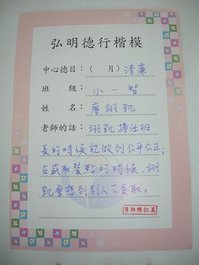 弘明德行楷模
中心德目：（ 月）清廉
班 級：小一智
姓 名：廖翊凱
老師的話：翊凱擔任班
長的時候能做到公平公正；
在盛取餐點的時候，翊
凱會想到別人又食取。